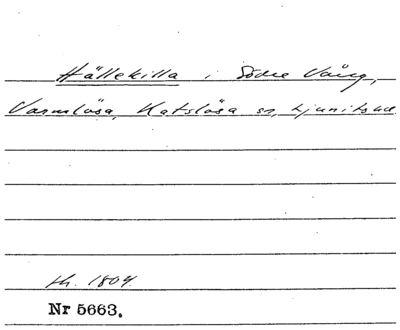 Hällekilla i Södre Vång,
Varmlösa, Katslösa sn, Ljunits hd.
th. 1804.
Nr 5663.